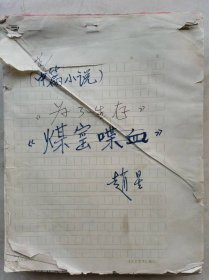 (中篇小说)
“为了生存”
“煤窑喋血”
赵星